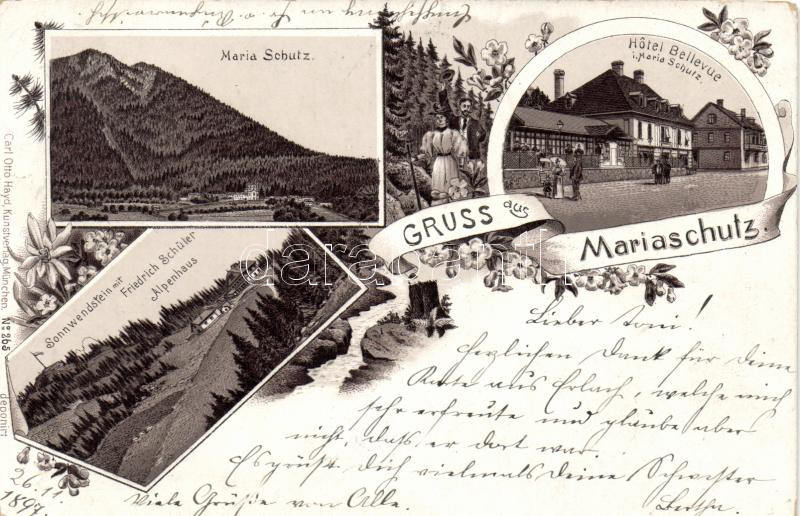 Maria Schutz.
Hôtel Bellevue
i. Maria Schutz.
GRUSS aus
Mariaschutz.
Sonnwendstein mit
Friedrich Schüler
Alpenhaus
Carl Otto Hayd, Kunstverlag, München. No 265
deponirt
darabanth
Lieber Toni!
Herzlichen Dank für Deine
Karte aus Erlach, welche mich
sehr erfreute und glaube aber
nicht, dass er dort war.
Es grüßt Dich vielmals Deine Schwester
Bertha.
Viele Grüße von Alle.
26.11.
1897.